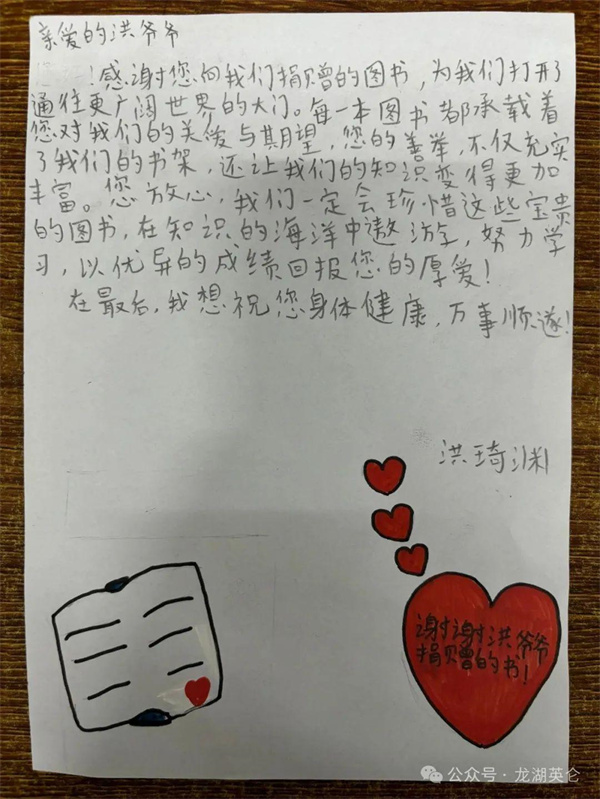 亲爱的洪爷爷
！感谢您向我们捐赠的图书，为我们打开了
通往更广阔世界的大门。每一本图书都承载着
您对我们的关爱与期望，您的善举，不仅充实
了我们的书架，还让我们的知识变得更加
丰富。您放心，我们一定会珍惜这些宝贵
的图书，在知识的海洋中遨游，努力学
习，以优异的成绩回报您的厚爱！
在最后，我想祝您身体健康，万事顺遂！
洪琦渊
谢谢洪爷爷
捐赠的书！
公众号·龙湖英仑